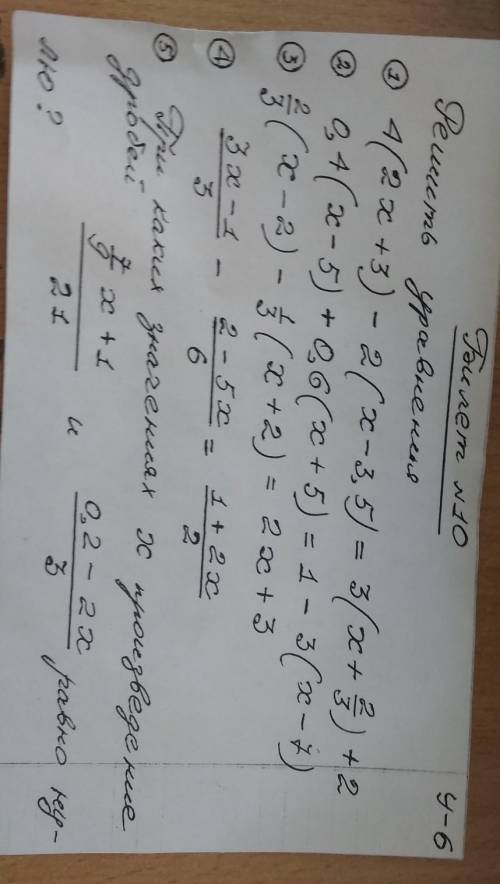 У-6
Билет №10
Решить уравнения
① 4(2x+3) - 2(x-3,5) = 3(x+2/3)+2
② 0,4(x-5)+0,6(x+5) = 1-3(x-7)
③ 2/3(x-2) - 1/3(x+2) = 2x+3
④ (3x-1)/3 - (2-5x)/6 = (1+2x)/2
⑤ При каких значениях x произведение
дробей (7/9 x+1)/21 и (0,2-2x)/3 равно ну-
лю?